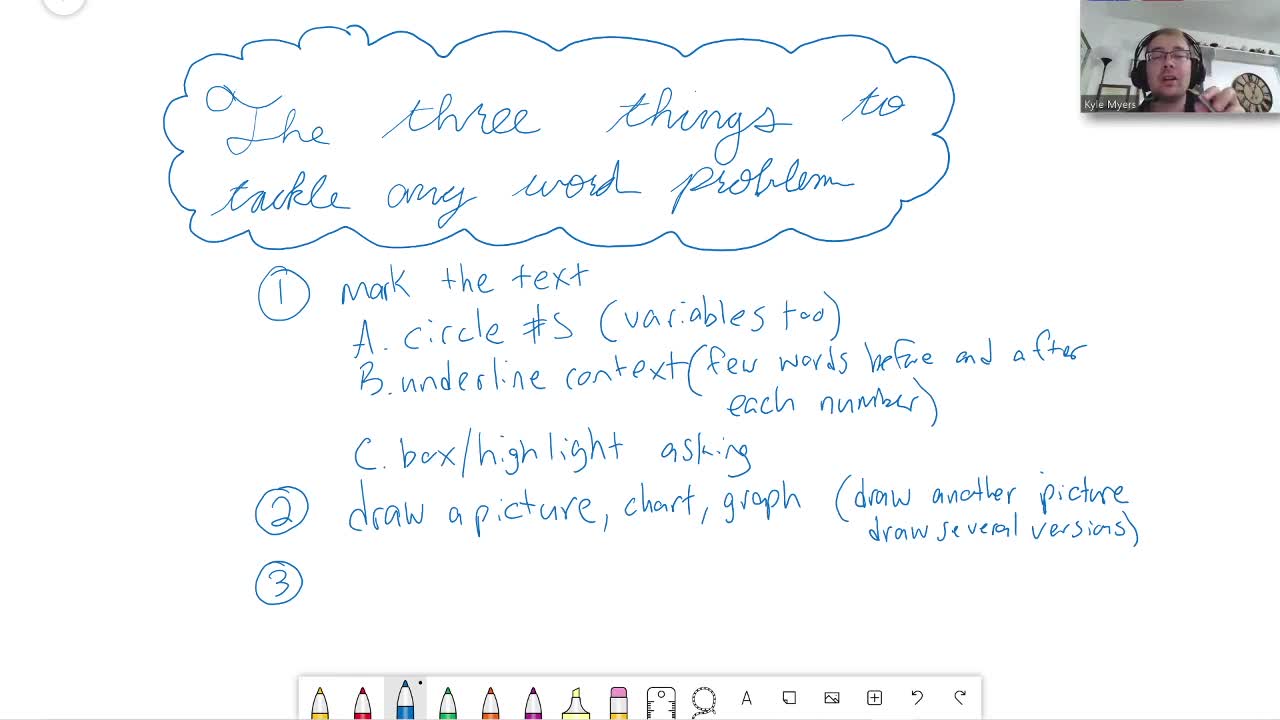 The three things to
tackle any word problem
① mark the text
A. circle #s (variables too)
B. underline context (few words before and after
each number)
C. box/highlight asking
② draw a picture, chart, graph (draw another picture
draw several versions)
③
Kyle Myers
A